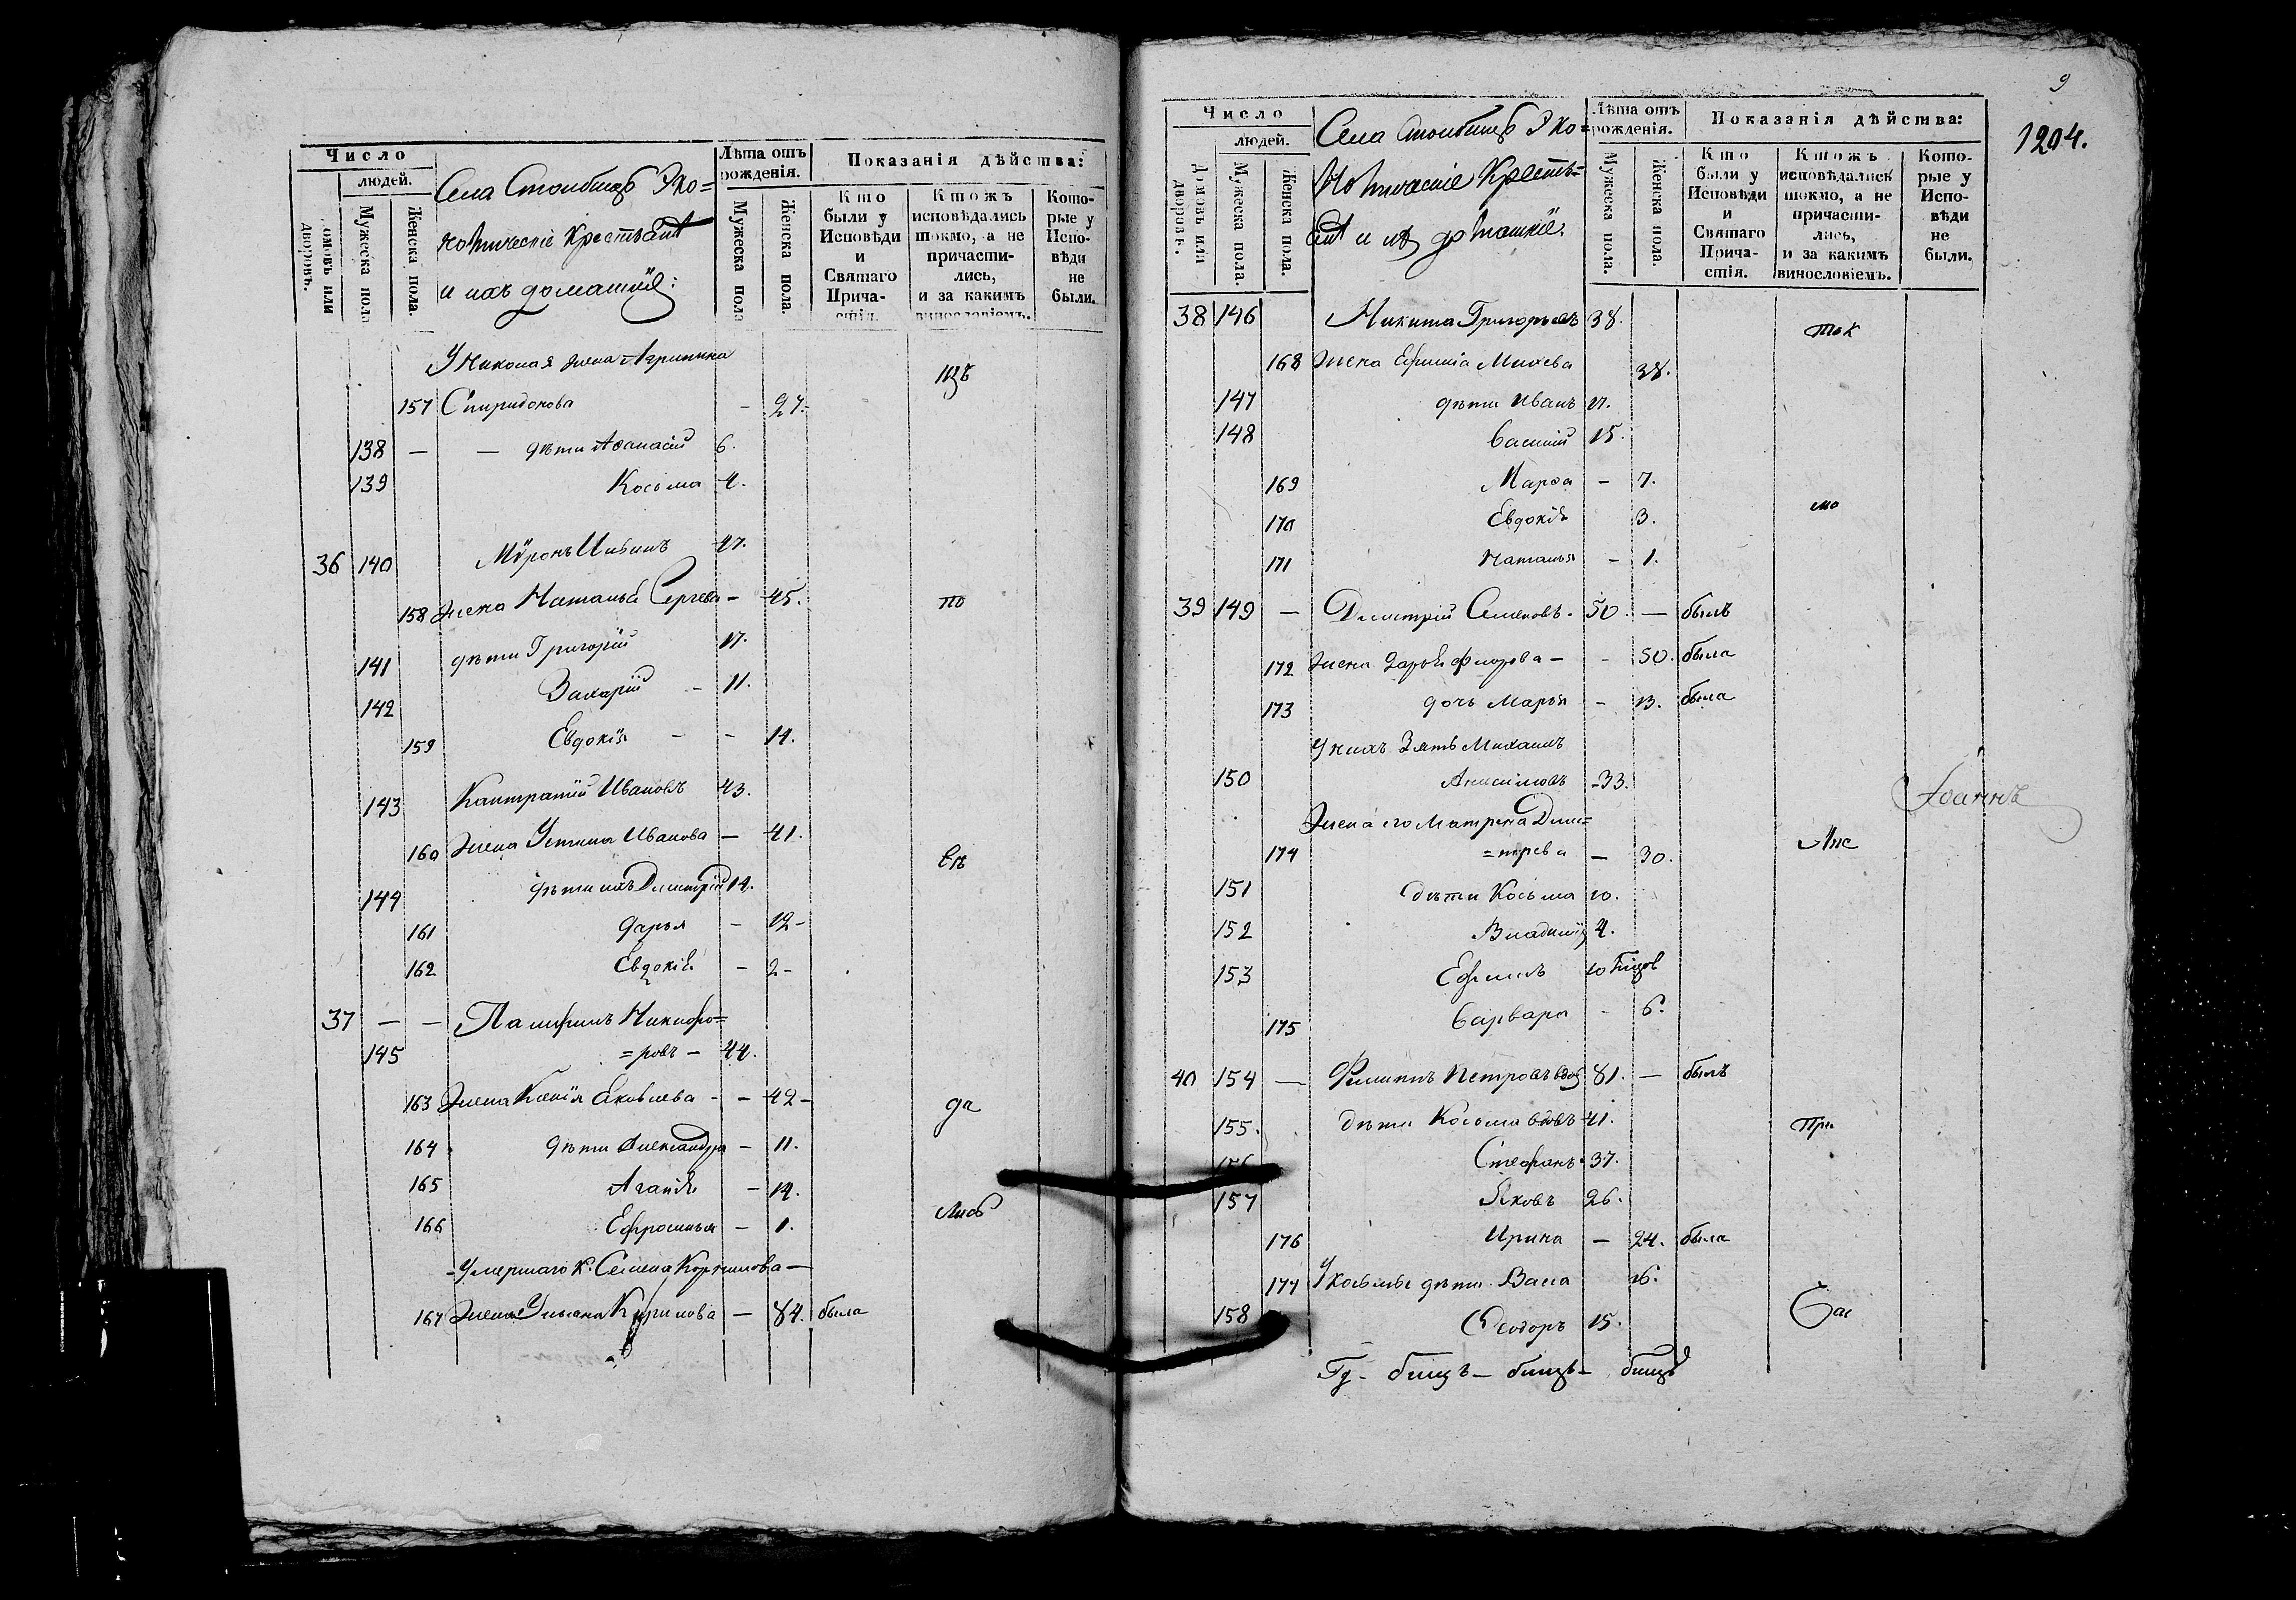 Число
людей.
домовъ или дворовъ.
Мужеска пола
Женска пола.
Села Столбищъ Эко=
номическіе Крестьянѣ
и ихъ домашніе:
Лѣта отъ рожденія.
Мужеска пола
Женска пола.
Показанія дѣйства:
Кто были у Исповѣди и Святаго Прича- стія.
Ктожъ исповѣдались токмо, а не причасти- лись, и за какимъ винословіемъ.
Кото- рые у Испо- вѣди не были.
У Николая жена Агрипина
157 Спиридонова - 27.
138 — — дѣти Аѳанасій 6.
139 Косьма 4.
36 140 Мѵронъ 47.
158 жена Наталья Сергева - 45. по
141 дѣти Григорій 17.
142 Захарій - 11.
159 Евдокія - - 14.
143 Кантратій Ивановъ 43.
160 жена Устина Иванова — 41.
вѣ
144 дѣти ихъ Димитрій 14.
161 Дарья - 12-
162 Евдокія - 2-
37 — — Памфилъ Никифо=
145 =ровъ - 44.
163 жена Ксенія Яковлева - - 42 -
да
164 дѣти Александра - 11.
165 Агаѳія - 14.
166 Ефросинья - 1.
-Умершаго К. Семена Корнилова —
167 жена Ульяна Кирилова — 84. была
9
1204.
Число
людей.
Домовъ или дворовъ.
Мужеска пола.
Женска пола.
Села Столбищъ Эко=
номическіе Кресть=
янѣ и ихъ домашніе.
Лѣта отъ рожденія.
Мужеска пола.
Женска пола.
Показанія дѣйства:
Кто были у Исповѣди и Святаго Прича- стія.
Ктожъ исповѣдались токмо, а не причасти- лись, и за какимъ винословіемъ.
Кото- рые у Испо- вѣди не были.
38 146 Никита Григорьевъ 38.
ток
168 жена Ефимія Михева 38.
147 дѣти Иванъ 17.
148 Василій 15.
169 Марѳа - 7.
мо
170 Евдокія 3.
171 Наталья - 1.
39 149 — Димитрій Семеновъ - 50. — былъ
172 жена Дарья Фролова - - 50. была
173 дочь Марья - 13. была
У нихъ Зять Михаилъ
150 Анисимовъ - 33.
Іоаннъ
жена его Матрена Дими=
174 =трева — 30.
151 дѣти Косьма 10.
152 Владиміръ 4.
153 Ефимъ
175 Варвара - 6.
40 154 — Филипъ Петровъ вдов 81. — былъ
155. дѣти Косьма вдовъ 41.
При
156 Стефанъ 37.
157 Яковъ 26.
176 Ирина — 24. была
177 У Косьмы дѣти Васса 16.
158 Ѳеодоръ 15.